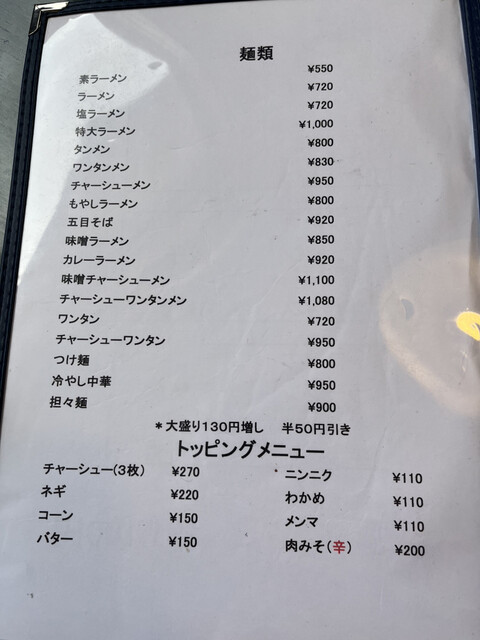 麺類
素ラーメン ¥550
ラーメン ¥720
塩ラーメン ¥720
特大ラーメン ¥1,000
タンメン ¥800
ワンタンメン ¥830
チャーシューメン ¥950
もやしラーメン ¥800
五目そば ¥920
味噌ラーメン ¥850
カレーラーメン ¥920
味噌チャーシューメン ¥1,100
チャーシューワンタンメン ¥1,080
ワンタン ¥720
チャーシューワンタン ¥950
つけ麺 ¥800
冷やし中華 ¥950
担々麺 ¥900
*大盛り130円増し 半50円引き
トッピングメニュー
チャーシュー(3枚) ¥270 ニンニク ¥110
ネギ ¥220 わかめ ¥110
コーン ¥150 メンマ ¥110
バター ¥150 肉みそ(辛) ¥200